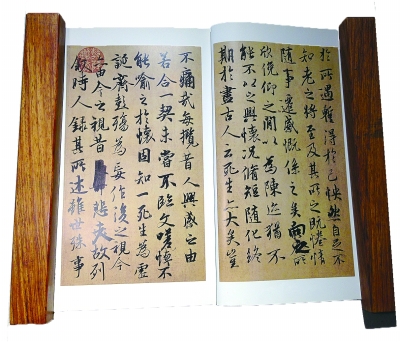 於所遇暫得於己怏然自足不
知老之將至及其所之既惓情
隨事遷感慨係之矣向之所
欣俛仰之閒以為陳迹猶不
能不以之興懷況脩短隨化終
期於盡古人云死生亦大矣豈
不痛哉每攬昔人興感之由
若合一契未嘗不臨文嗟悼不
能喻之於懷固知一死生為虛
誕齊彭殤為妄作後之視今
亦由今之視昔悲夫故列
敘時人錄其所述雖世殊事